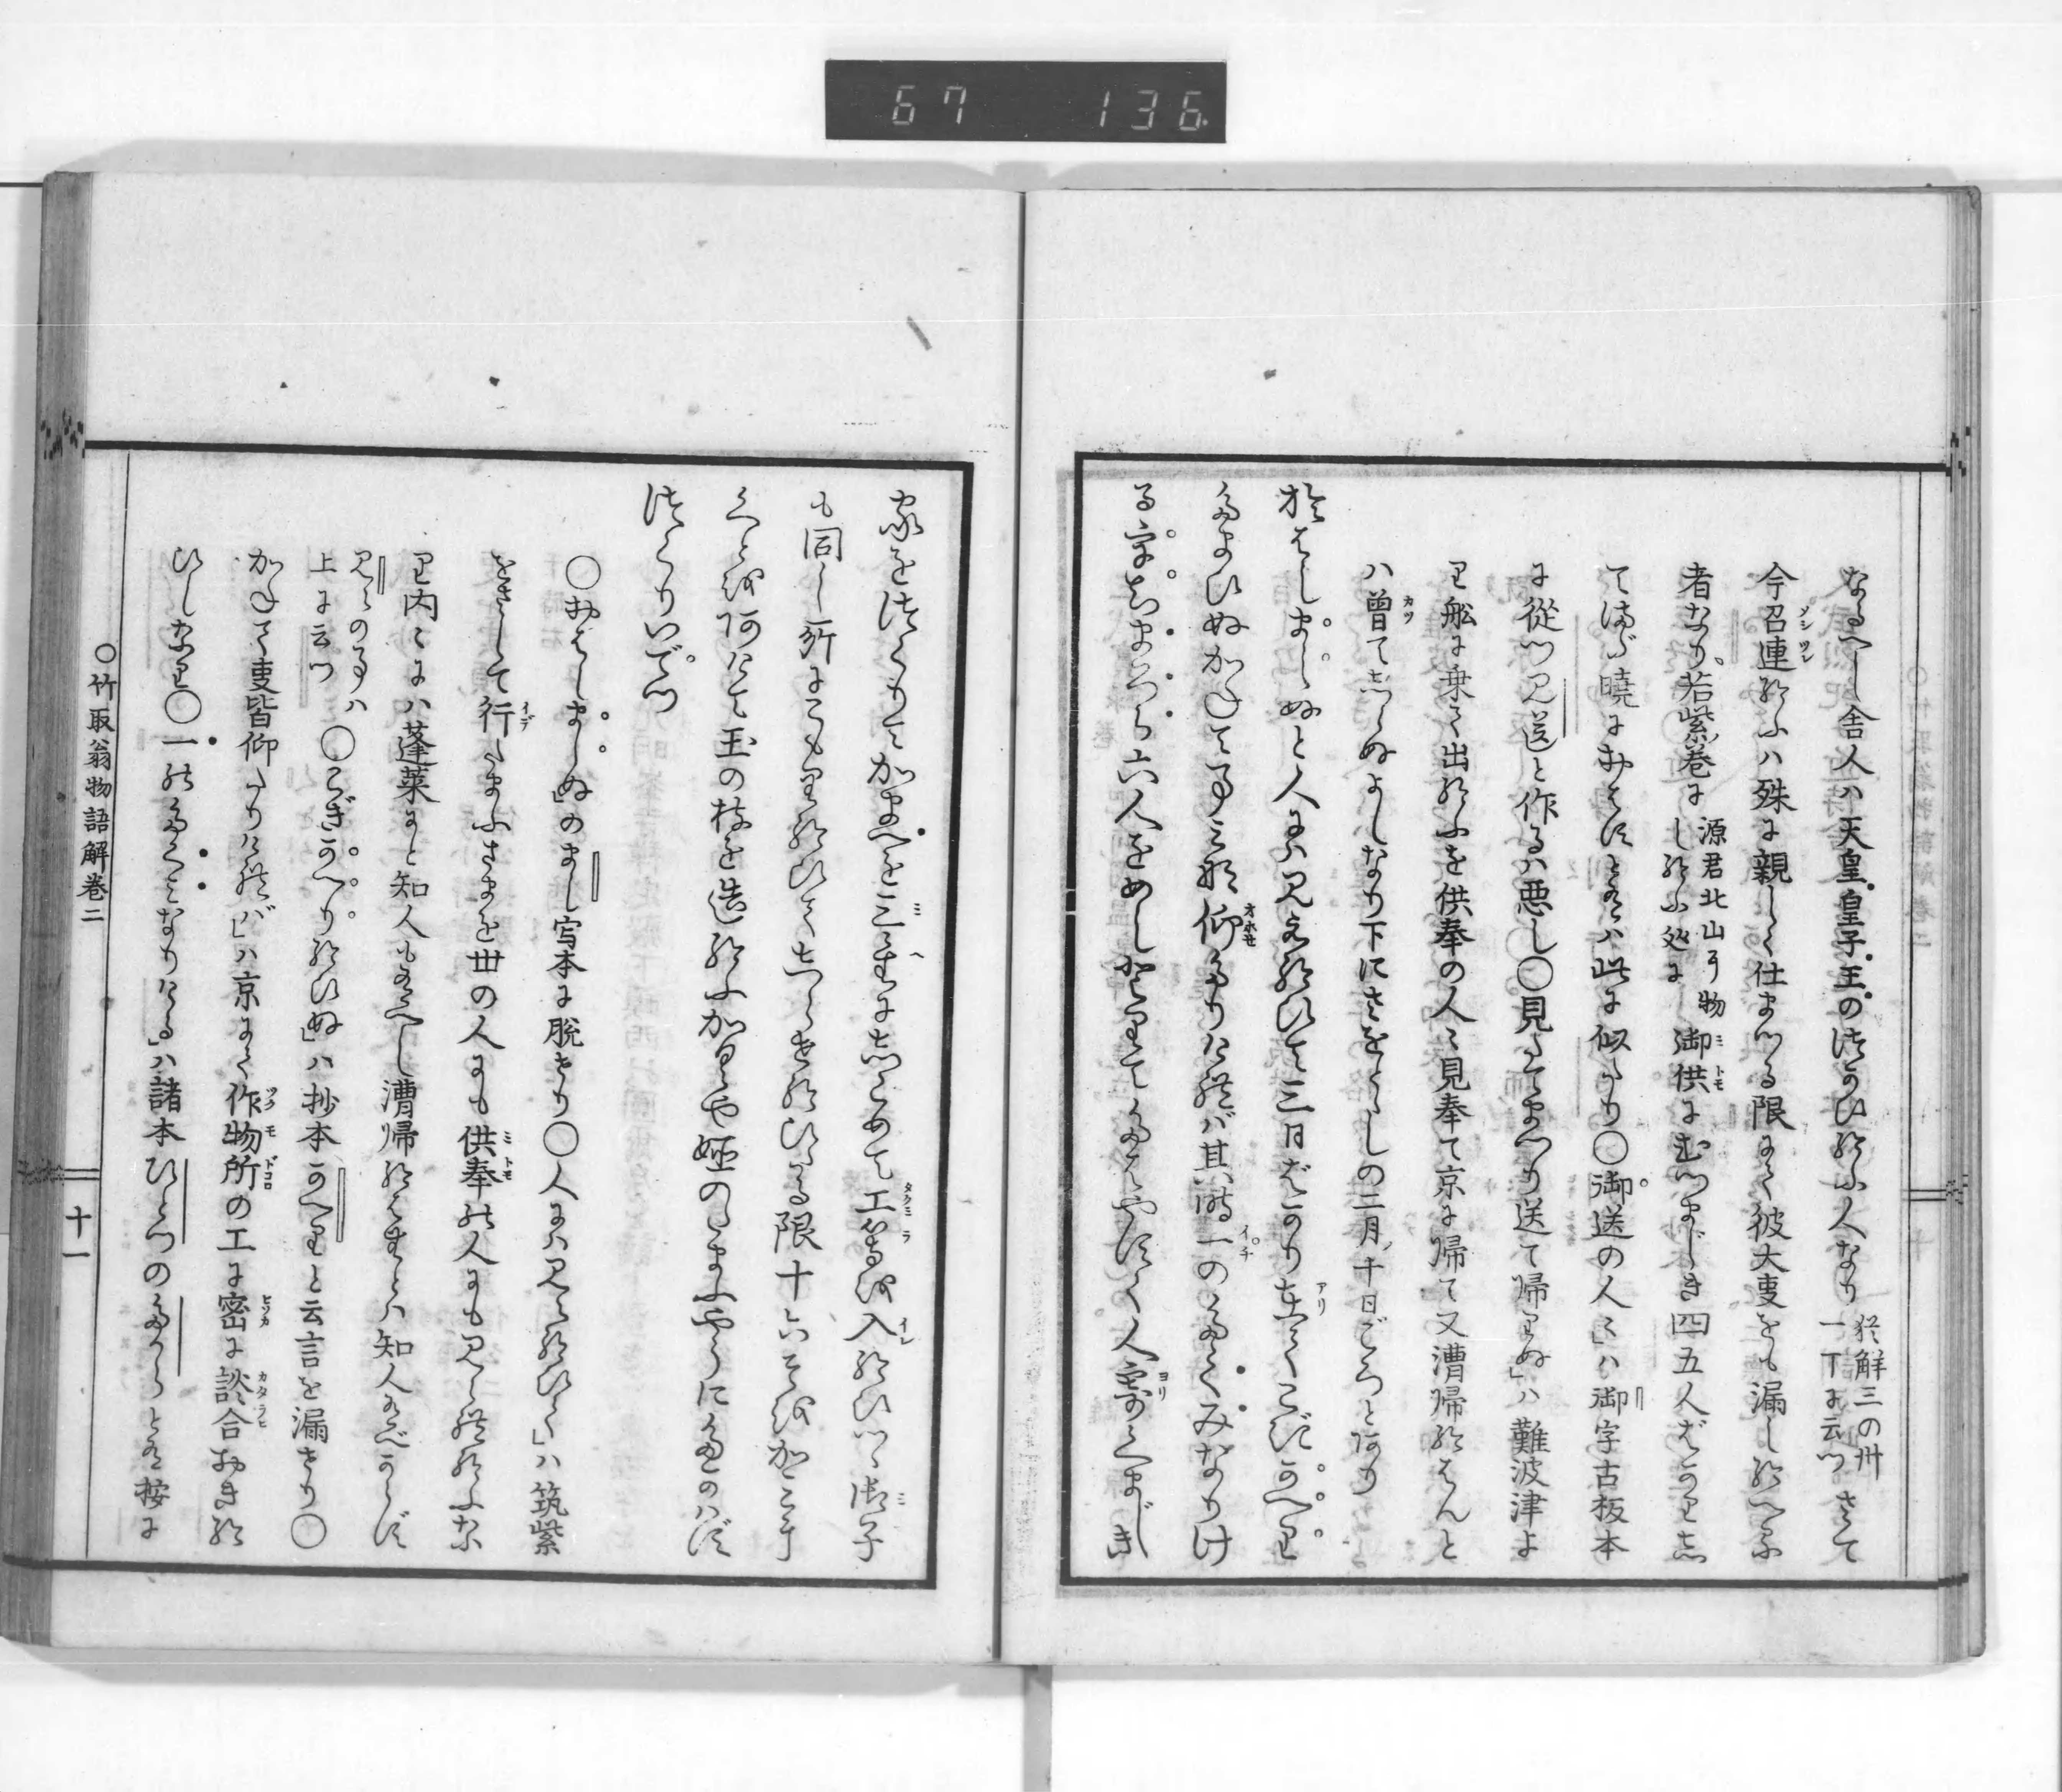 67 136
なるべし舎人ハ天皇皇子王のつかひ給ふ人なり 猶解三の卅一丁に云つ さて
今召連給ふハ殊に親しく仕まつる限にて彼大事をも漏し給へる
者なり若紫巻に 源君北山ヨリ物し給ふ処に 御供にむつましき四五人ばかりし
てまだ暁におはすとあるハ此に似たり〇御送の人々」ハ御字古板本
に従つ見送と作るハ悪し〇見たてまつり送て帰りぬ」ハ難波津よ
り舩に乗て出給ふを供奉の人々見奉て京に帰て又漕帰給はんと
ハ曾てしらぬよしなり下にさをとゝしの二月十日ごろとあり
おはしましぬと人にハ見え給ひて三日ばかり在てこぎかへり
たまひぬかねて事み那仰たりければ其時一のたくみなりけ
る字あまつら六人をめしとりてたはやすく人寄くまじき
家をつくりてかまへを三重にしこめて工等を入給ひつゝ御子
も同じ所にこもり給ひてしらせ給ひたる限十六そをかミに
くとをあけて玉の枝を造給ふかくや姫のたまふやうにたかはず
つくりいでつ
〇おはしましぬ」のまし写本に脱せり〇人にハ見え給ひて」ハ筑紫
をさして行たまふさまを世の人にも供奉の人にも見え給ふな
り内々にハ蓬莱にと知人もあるべし漕帰給はむとハ知人あるべからず
見えの事ハ上に云つ〇こぎかへり給ひぬ」ハ抄本かへりと云言を漏せり〇
かねて事皆仰たりければ」ハ京にて作物所の工に密に談合おき給
ひしなり〇一のたくみなりける」ハ諸本ひとつのたからとある按に
〇竹取翁物語解巻二
十一